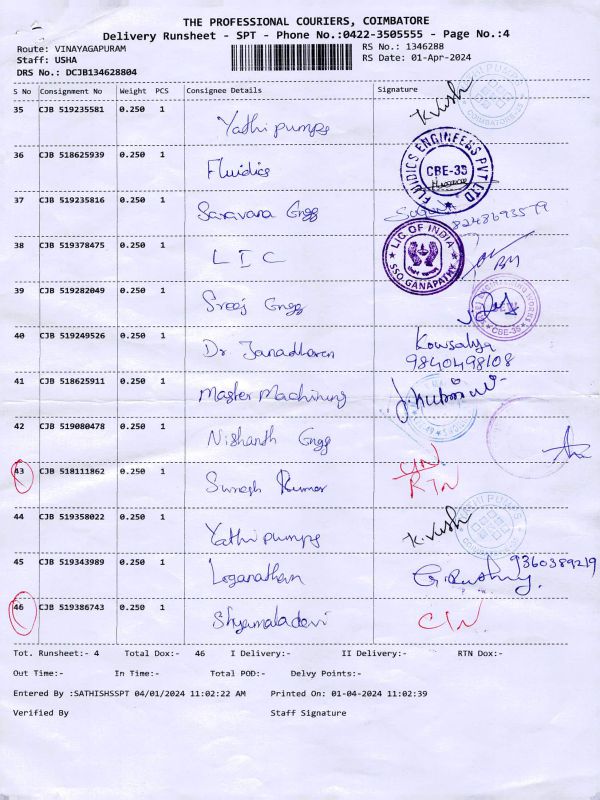 THE PROFESSIONAL COURIERS, COIMBATORE
Delivery Runsheet - SPT - Phone No.:0422-3505555 - Page No.:4
Route: VINAYAGAPURAM RS No.: 1346288
Staff: USHA RS Date: 01-Apr-2024
DRS No.: DCJB134628804
S No Consignment No Weight PCS Consignee Details Signature
35 CJB 519235581 0.250 1 Yathi pumps K. Vush
COIMBATORE-35
36 CJB 518625939 0.250 1 Fluidics
FLUIDICS ENGINEERS PVT LTD CBE-35
37 CJB 519235816 0.250 1 Saravana Engg 8248693579
38 CJB 519378475 0.250 1 LIC
LIC OF INDIA SSO GANAPATHY
BM
39 CJB 519282049 0.250 1 Sreej Engg
CBE-35
40 CJB 519249526 0.250 1 Dr Janadharan Kowsalya
9840498108
41 CJB 518625911 0.250 1 Master Machining
42 CJB 519080478 0.250 1 Nishanth Engg
43 CJB 518111862 0.250 1 Suresh Kumar C/N
RTN
44 CJB 519358022 0.250 1 Yathi pumps K. Vush
45 CJB 519343989 0.250 1 Loganathan 9360389219
46 CJB 519386743 0.250 1 Shyamaladevi C/N
Tot. Runsheet:- 4 Total Dox:- 46 I Delivery:- II Delivery:- RTN Dox:-
Out Time:- In Time:- Total POD:- Delvy Points:-
Entered By :SATHISHSSPT 04/01/2024 11:02:22 AM Printed On: 01-04-2024 11:02:39
Verified By Staff Signature